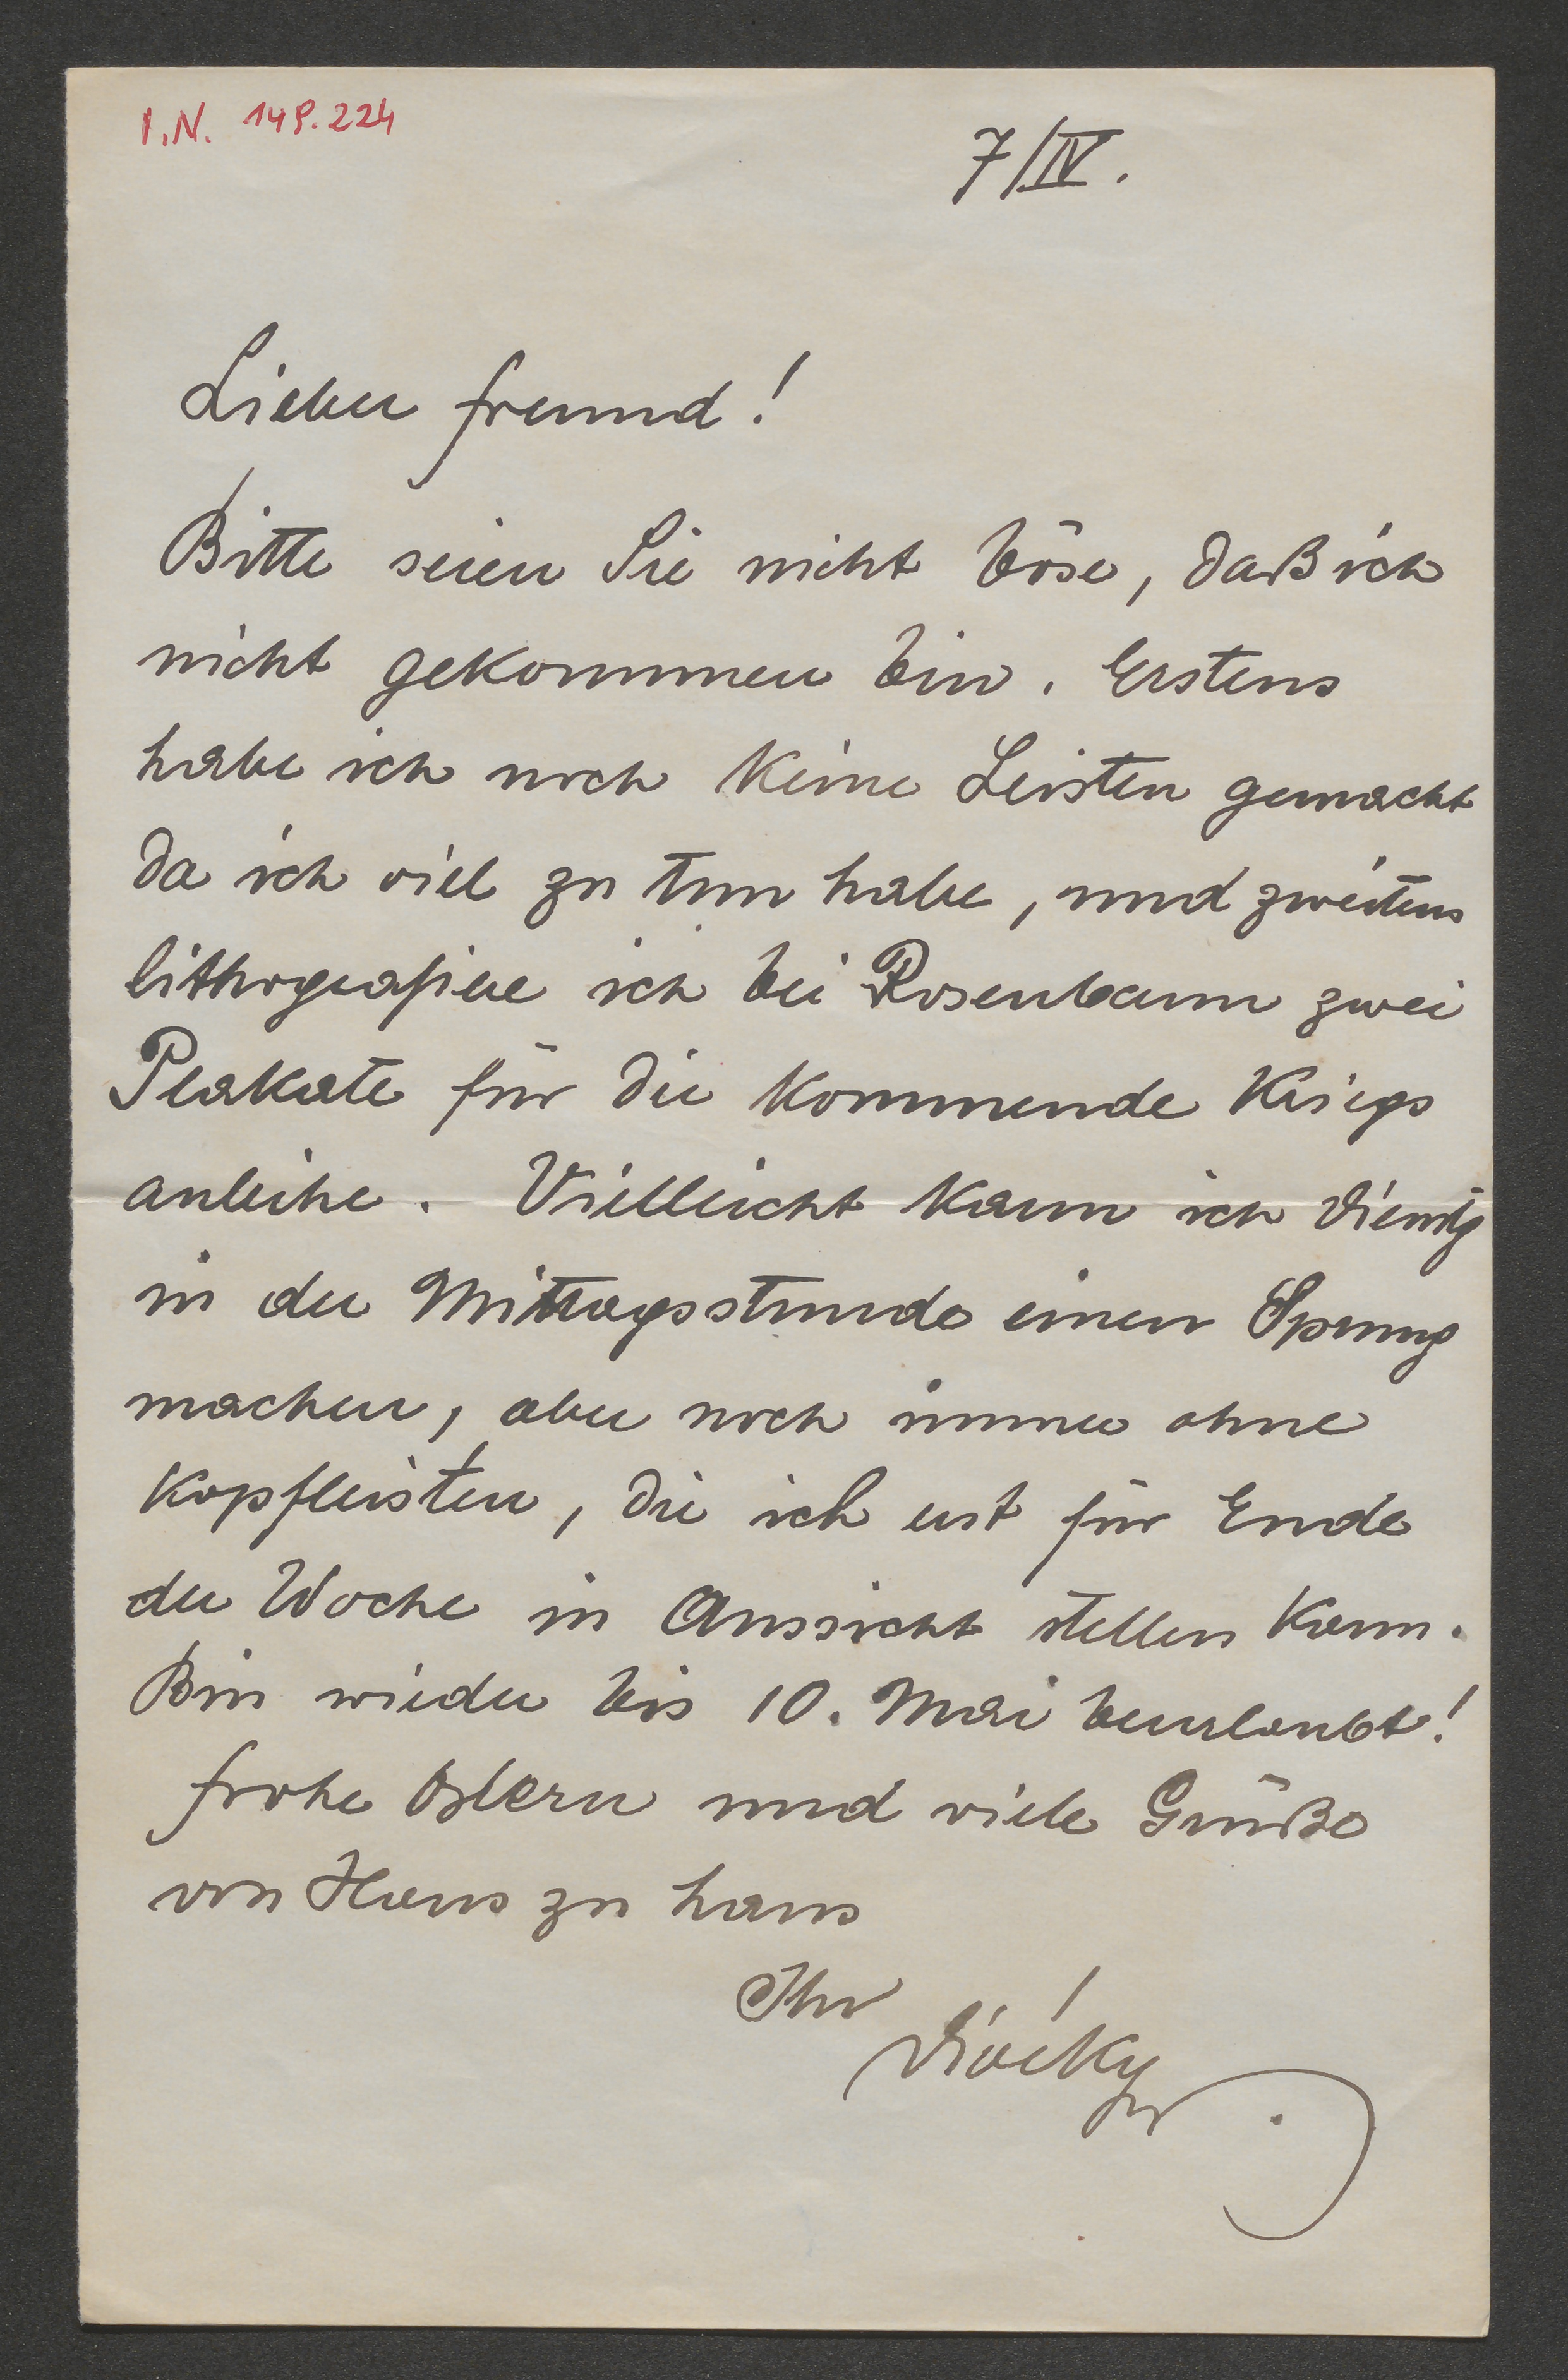 I.N. 149.224
7/IV.
Lieber Freund!
Bitte seien Sie nicht böse, daß ich
nicht gekommen bin. Erstens
habe ich noch keine Leisten gemacht
da ich viel zu tun habe, und zweitens
lithografiere ich bei Rosenbaum zwei
Plakate für die kommende Kriegs
anleihe. Vielleicht kann ich Dienstg
in der Mittagsstunde einen Sprung
machen, aber noch immer ohne
Kopfleisten, die ich erst für Ende
der Woche in Aussicht stellen kann.
Bin wieder bis 10. Mai beurlaubt!
Frohe Ostern und viele Grüße
von Haus zu Haus
Ihr